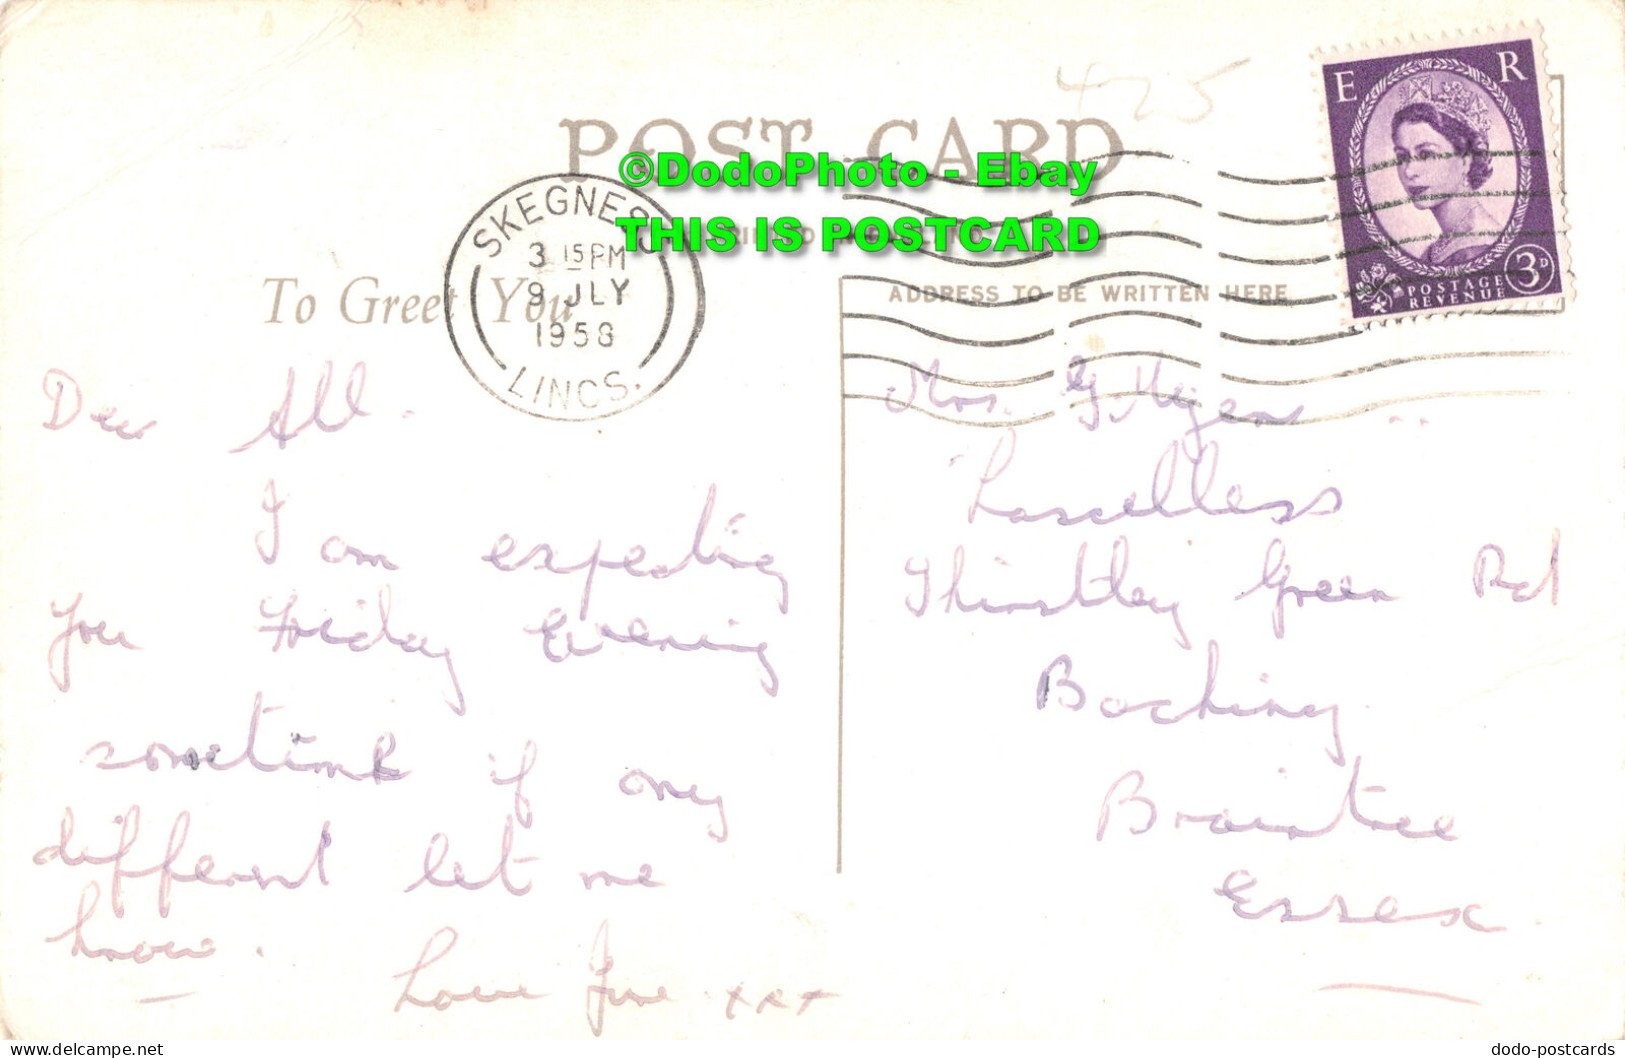 425
POST CARD
©DodoPhoto - Ebay
THIS IS POSTCARD
SKEGNESS
3 15 PM
9 JLY
1958
LINCS.
E R
POSTAGE
REVENUE
3D
To Greet You
ADDRESS TO BE WRITTEN HERE
Dear All.
I am expecting
you Friday Evening
sometime if any
different let me
know.
Love June xxx
Mrs. G.
Lascelless
Thirstley Green Rd
Bocking
Braintree
Essex
dodo-postcards